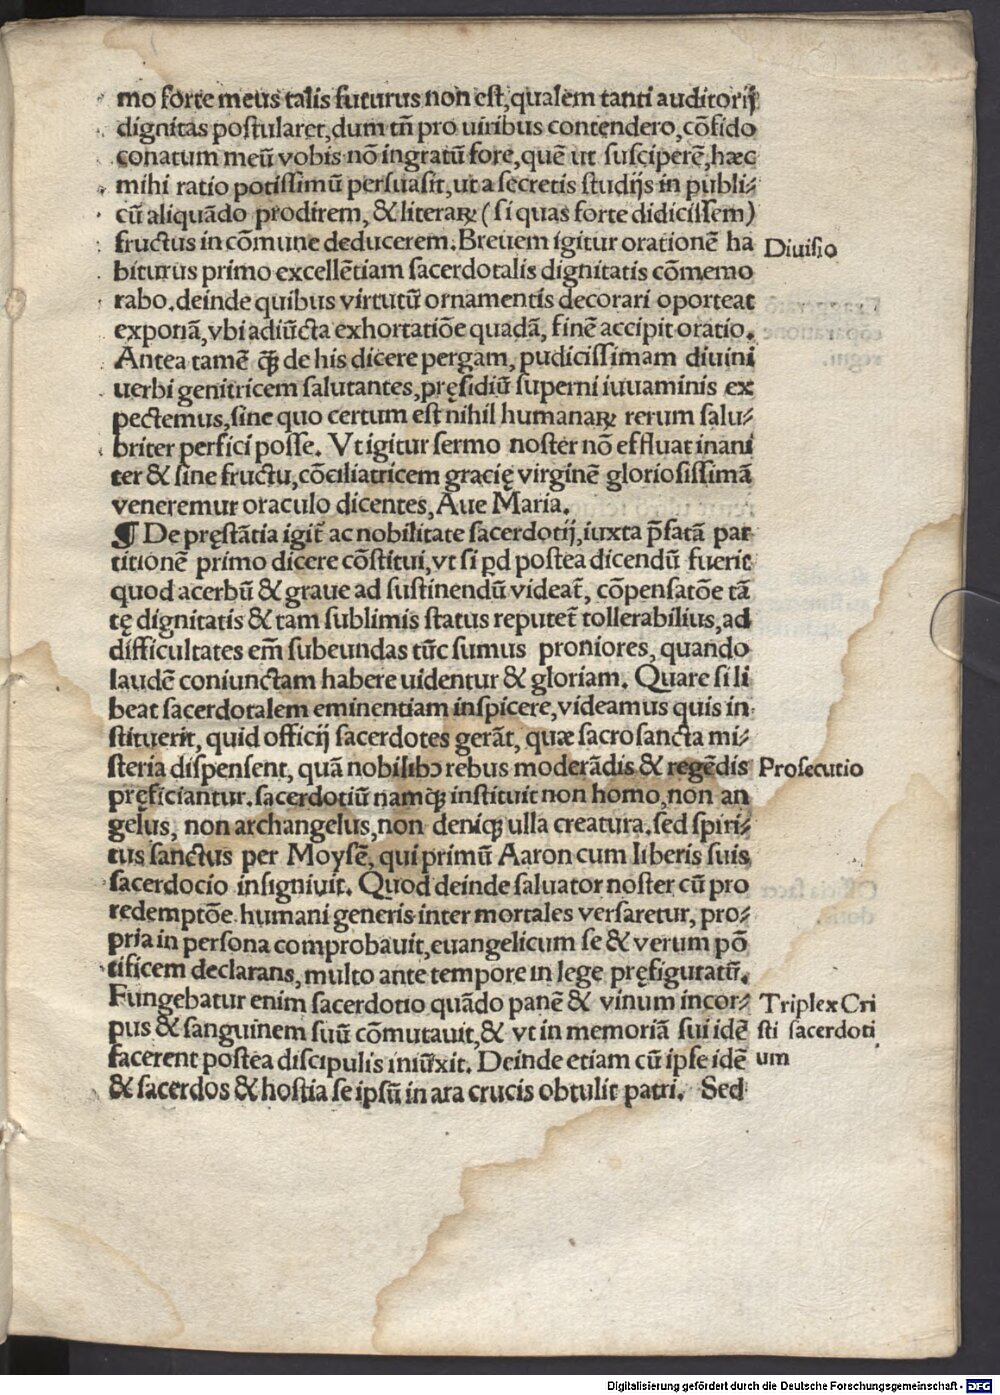 mo forte meus talis futurus non est,qualem tanti auditorij
dignitas postularet,dum tñ pro uiribus contendero,cõfido
conatum meũ vobis nõ ingratũ fore,quẽ ut susciperẽ,hæc
mihi ratio potissimũ persuasit,ut a secretis studijs in publi-
cũ aliquãdo prodirem, & literaꝝ (si quas forte didicissem)
fructus in cõmune deducerem.Breuem igitur orationẽ ha
Diuisio
biturus primo excellẽtiam sacerdotalis dignitatis cõmemo
rabo.deinde quibus virtutũ ornamentis decorari oporteat
exponã,vbi adiũcta exhortatiõe quadã, finẽ accipit oratio.
Antea tamẽ q̃ꝫ de his dicere pergam, pudicissimam diuini
uerbi genitricem salutantes,pręsidiũ superni iuuaminis ex
pectemus,sine quo certum est nihil humanaꝝ rerum salu-
briter perfici posse. Vt igitur sermo noster nõ effluat inani
ter & sine fructu,cõciliatricem gracię virginẽ gloriosissimã
veneremur oraculo dicentes, Aue Maria.
¶ De pręstãtia igit̃ ac nobilitate sacerdotij,iuxta p̃fatã par
titionẽ primo dicere cõstitui,vt si ꝗd postea dicendũ fuerit
quod acerbũ & graue ad sustinendũ videat̃, cõpensatõe tã
tę dignitatis & tam sublimis status reputet̃ tollerabilius,ad
difficultates em̃ subeundas tũc sumus proniores, quando
laudẽ coniunctam habere uidentur & gloriam. Quare si li
beat sacerdotalem eminentiam inspicere,videamus quis in
stituerit, quid officij sacerdotes gerãt, quæ sacrosancta mi-
steria dispensent, quã nobilibꝰ rebus moderãdis & regẽdis
Prosecutio
pręficiantur.sacerdotiũ namqꝫ instituit non homo,non an
gelus, non archangelus,non deniqꝫ ulla creatura.sed spiri-
tus sanctus per Moysẽ, qui primũ Aaron cum liberis suis
sacerdocio insigniuit. Quod deinde saluator noster cũ pro
redemptõe humani generis inter mortales versaretur, pro-
pria in persona comprobauit,euangelicum se & verum põ
tificem declarans, multo ante tempore in lege pręfiguratũ.
Fungebatur enim sacerdotio quãdo panẽ & vinum incor-
Triplex Cri
pus & sanguinem suũ cõmutauit,& vt in memoriã sui idẽ
sti sacerdoti
facerent postea discipulis iniũxit. Deinde etiam cũ ipse idẽ
um
& sacerdos & hostia se ipsũ in ara crucis obtulit patri. Sed
Digitalisierung gefördert durch die Deutsche Forschungsgemeinschaft - DFG